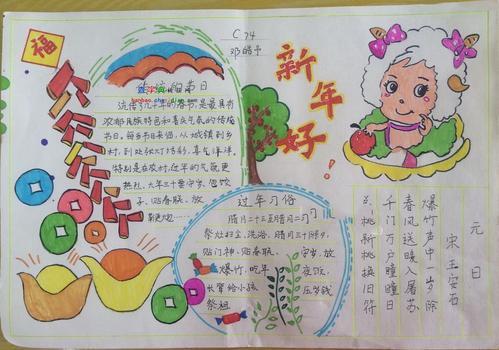 福
C74
的节日
流传了几千年的春节,是最具有
浓郁民族特色和喜庆气氛的传统
节日。每当节日来临,从城镇到乡
村,到处张灯结彩,喜气洋洋。
特别是在农村,过年的气氛更
热烈,大年三十要守岁、包饺
子、贴春联、放
鞭炮……
新年好
过年习俗
腊月二十三至腊月二
祭灶扫尘、洗浴、腊月三十除夕
贴门神、贴春联、守岁、放
爆竹、吃年夜饭、
长辈给小孩压岁钱
祭祖
元日
宋 王安石
爆竹声中一岁除
春风送暖入屠苏
千门万户曈曈日
总把新桃换旧符